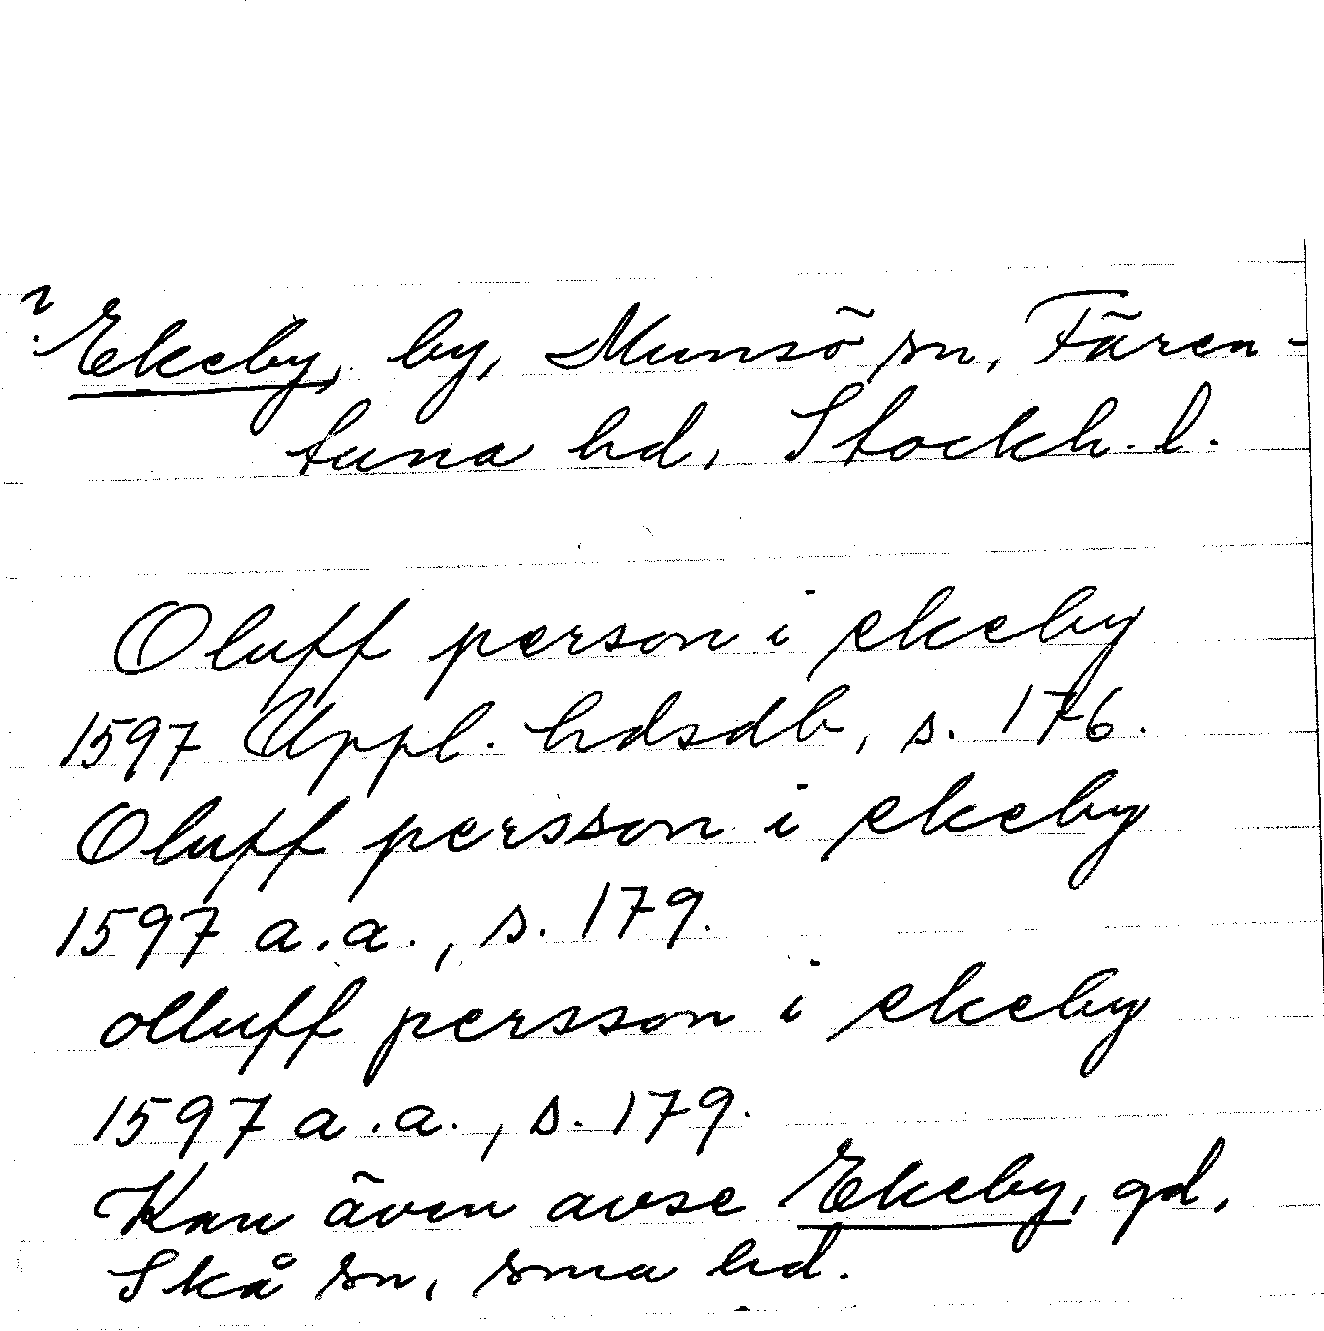 ? Ekeby, by, Munsö sn, Fären-
tuna hd, Stockh. l.
Oluff person i ekeby
1597 Uppl. hdsdb, s. 176.
Oluff persson i ekeby
1597 a.a., s. 179.
olluff persson i ekeby
1597 a.a., s. 179.
Kan även avse Ekeby, gd,
Skå sn, sma hd.